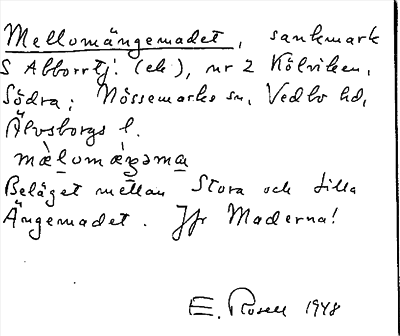 Mellomängemadet, sankmark
S Abborrtj. (ek), nr 2 Kölviken,
Södra; Nössemarks sn, Vedbo hd,
Älvsborgs l.
Beläget mellan Stora och Lilla
Ängemadet. Jfr Maderna!
E. Rosell 1948